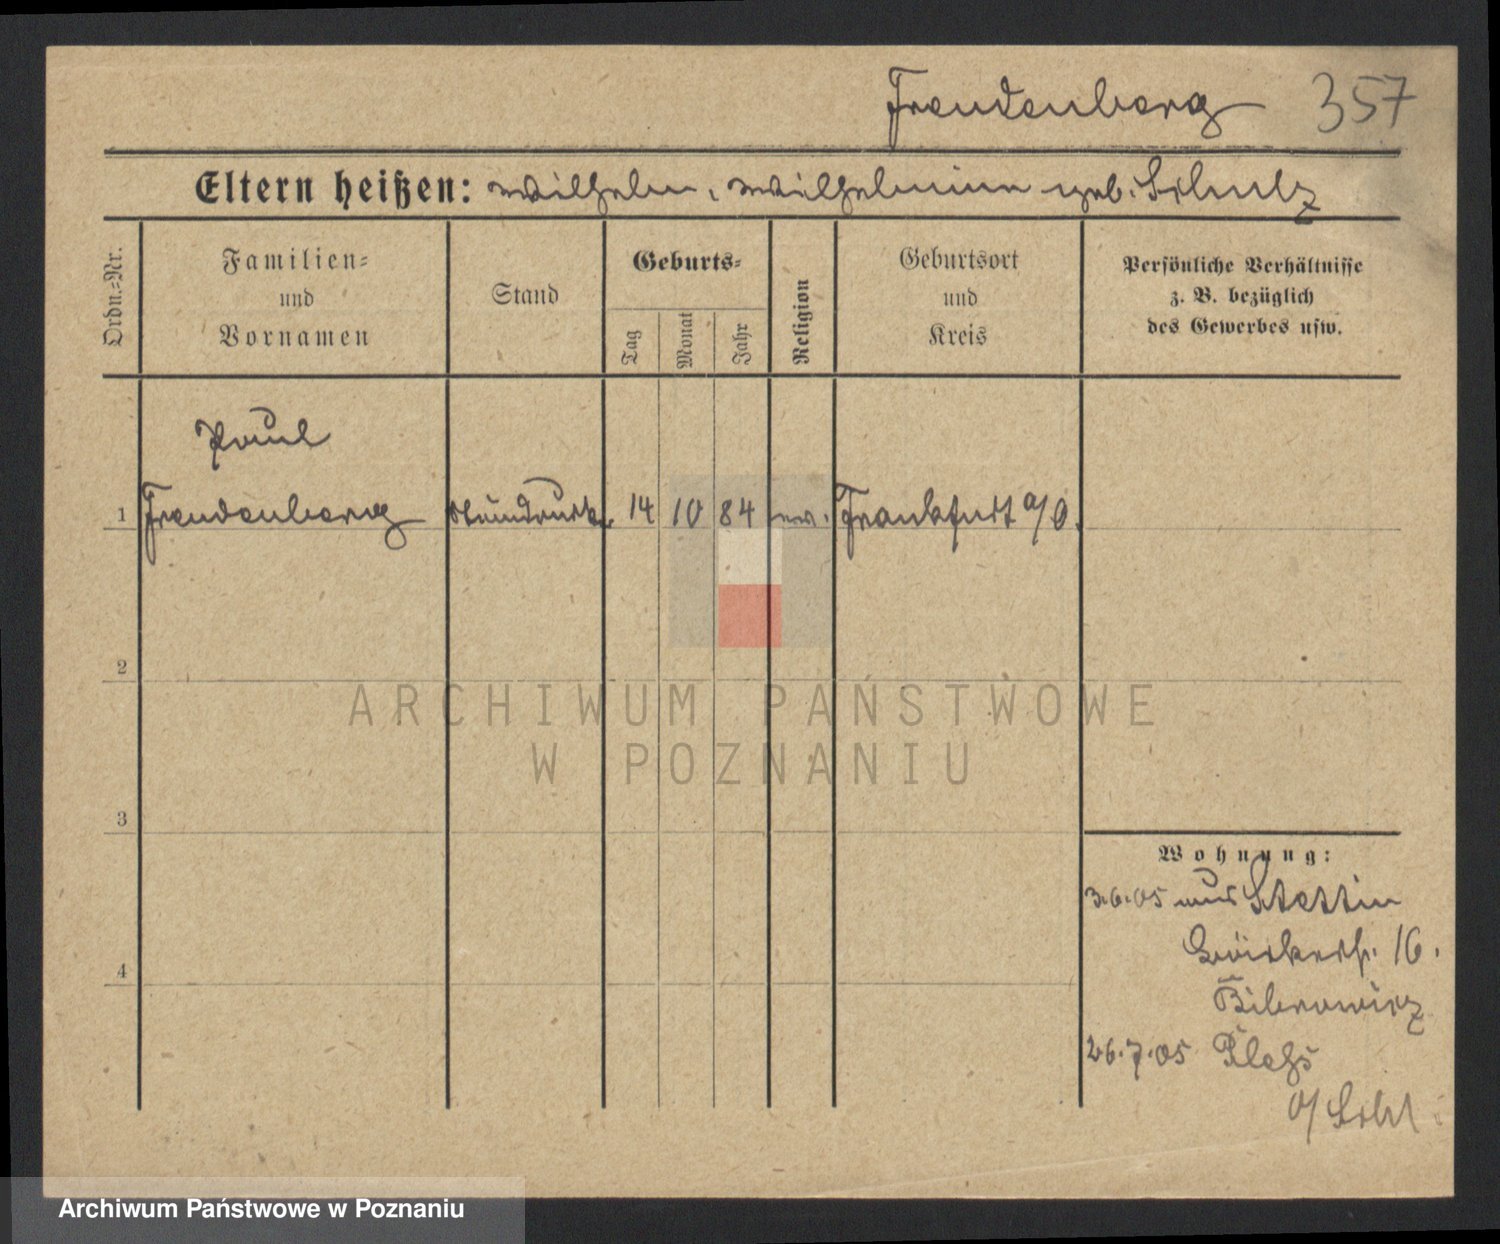 Freudenberg 357
Eltern heißen: Wilhelm, Wilhelmine geb. Schulz
Ordn.-Nr.
Familien-
und
Vornamen
Stand
Geburts-
Tag
Monat
Jahr
Religion
Geburtsort
und
Kreis
Persönliche Verhältnisse
z. B. bezüglich
des Gewerbes usw.
Paul
1 Freudenberg Steindruck. 14 10 84 ev. Frankfurt a/O.
2
ARCHIWUM PAŃSTWOWE
W POZNANIU
3
Wohnung:
3.6.05 aus Stettin
16.
4
26.7.05
Archiwum Państwowe w Poznaniu